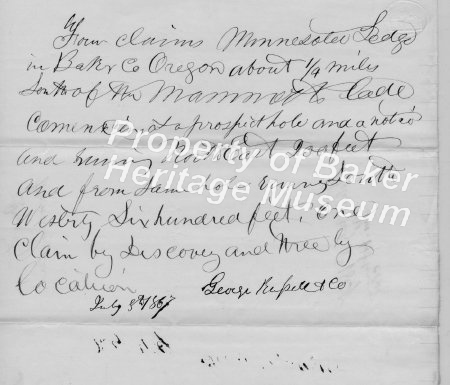 Four claims Minnesota Ledge
in Baker Co Oregon about 1/4 miles
South of the Mammoth Lade
at a prospect hole and a notice
and runing feet
and from same hole runing South
Westerly Six hundred feet, one
Claim by Discovey and three by
location
George Russell & Co
July 1867
Property of Baker
Heritage Museum